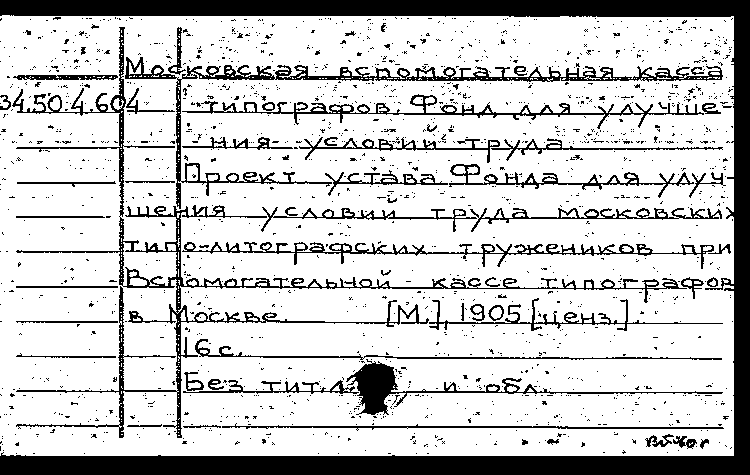 Московская вспомогательная касса
34.50.4.604 типографов. Фонд для улучше-
ния условий труда.
Проект устава Фонда для улуч-
шения условий труда московских
типо-литографских тружеников при
Вспомогательной кассе типографов
в Москве. [М.], 1905 [ценз.].
16 с.
Без тит. л. и обл.